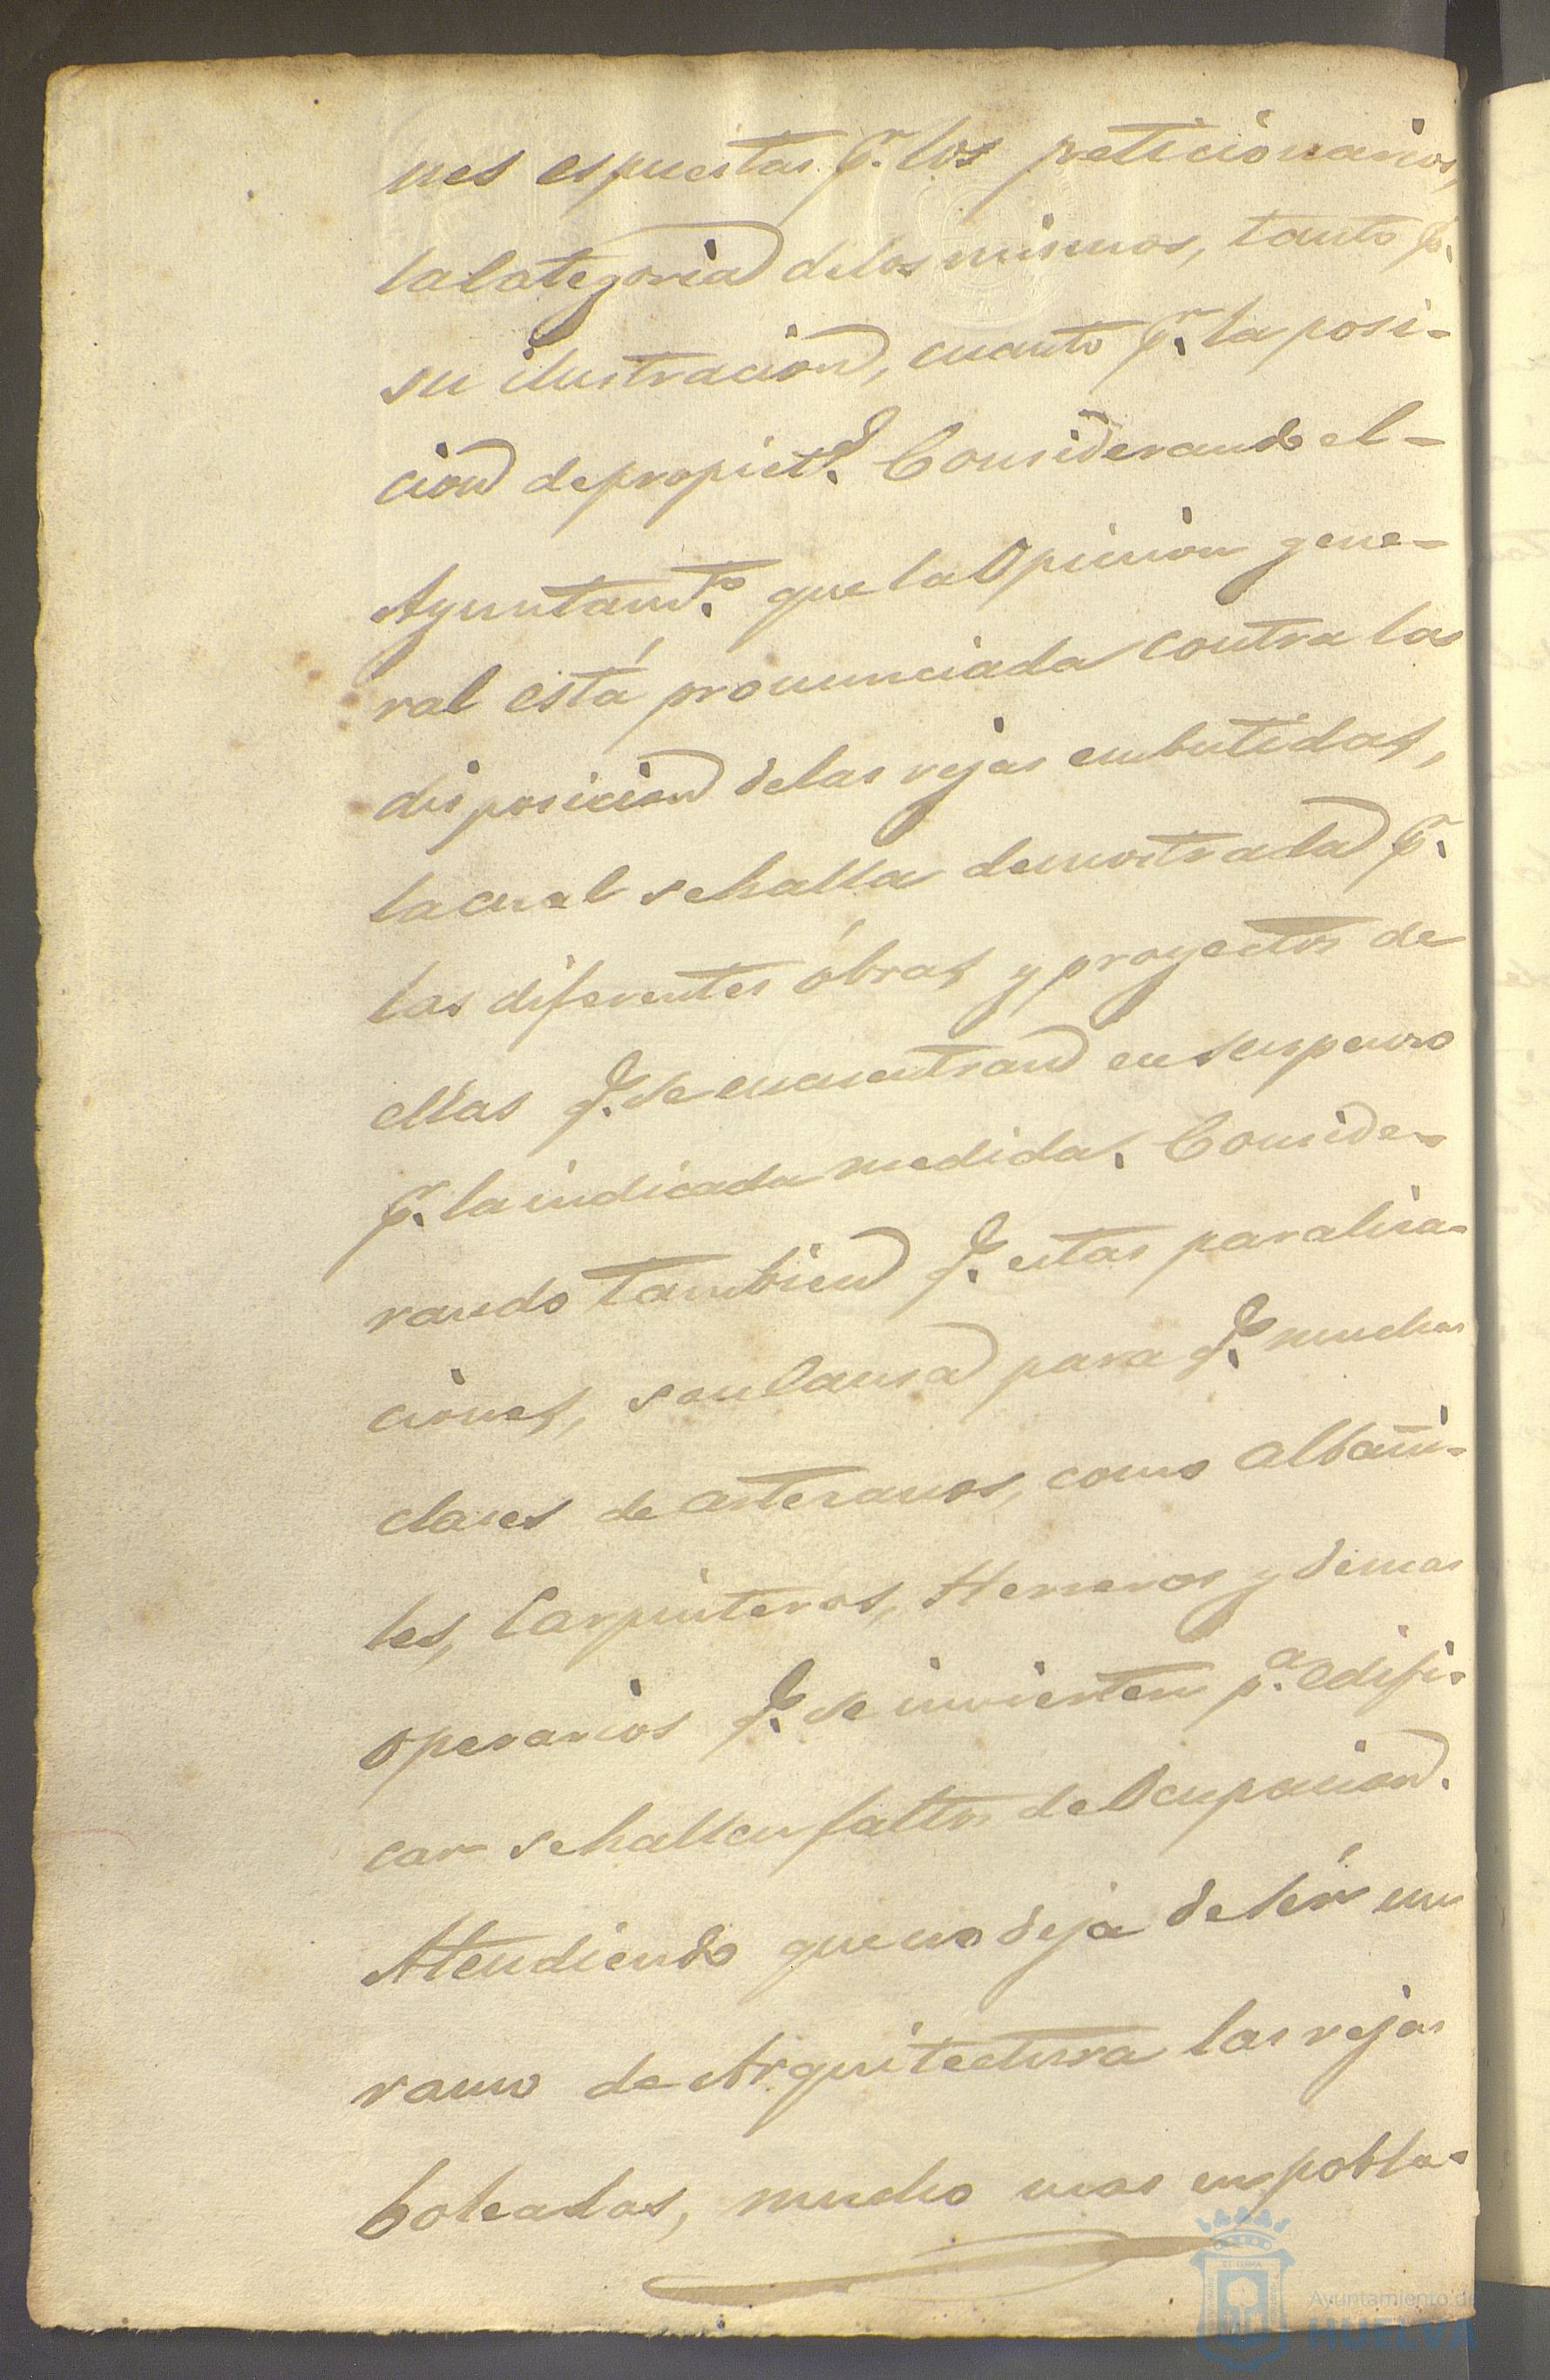 nes espuestas p.r los peticionarios,
la Categoria de los mismos, tanto p.r
su ilustracion, cuanto p.r la posi-
cion de propiet.d Considerando el-
Ayuntam.to que la Opinion gene-
ral está pronunciada contra la
disposicion de las rejas embutidas,
la cual se halla demostrada p.r
las diferentes óbras y proyectos de
ellas q.e se encuentran en suspenso
p.r la indicada medida. Conside-
rando tambien q.e estas paralisa-
ciones, son Causa para q.e muchas
clases de artesanos, como albañi-
les, Carpinteros, Herreros y demas
operarios q.e se invierten p.a edifi-
car se hallen faltos de Ocupacion.
Atendiendo que no deja de sér un
ramo de Arquitectura las rejas
boleadas, mucho mas en pobla-
Ayuntamiento de
HUELVA